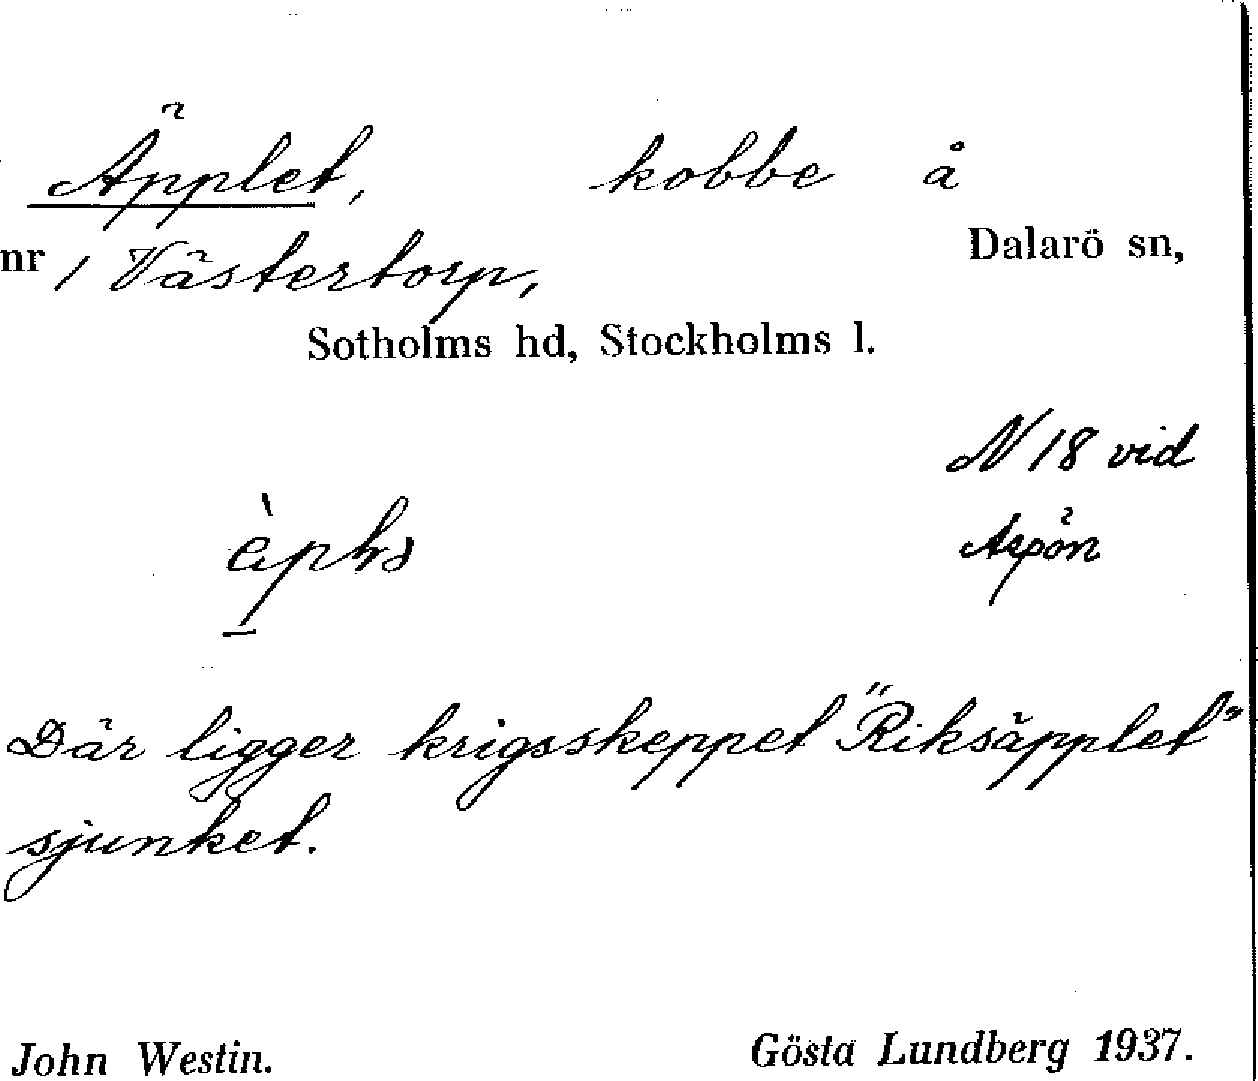 Äpplet, kobbe å
nr 1 Västertorp, Dalarö sn,
Sotholms hd, Stockholms l.
N 18 vid
Aspön
Där ligger krigsskeppet "Riksäpplet"
sjunket.
John Westin. Gösta Lundberg 1937.